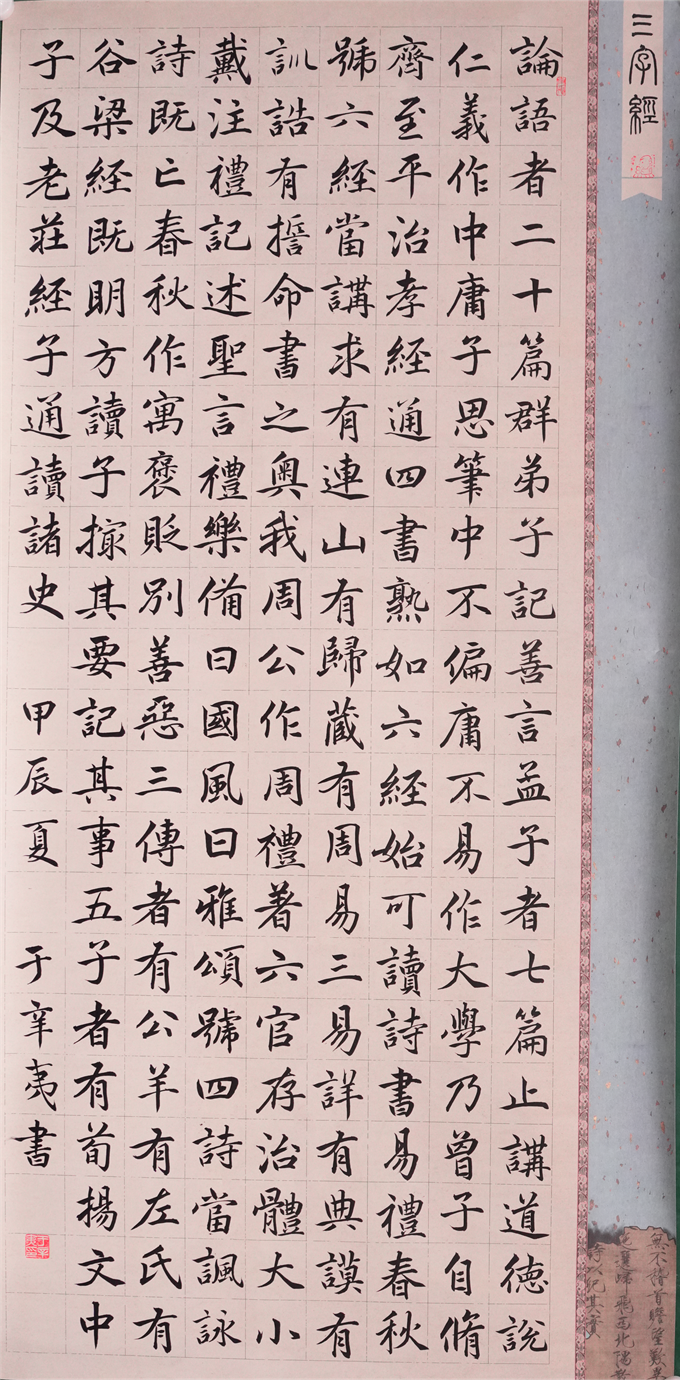 三字經
論語者二十篇群弟子記善言孟子者七篇止講道德說
仁義作中庸子思筆中不偏庸不易作大學乃曾子自脩
齊至平治孝經通四書熟如六經始可讀詩書易禮春秋
號六經當講求有連山有歸藏有周易三易詳有典謨有
訓誥有誓命書之奧我周公作周禮著六官存治體大小
戴注禮記述聖言禮樂俻曰國風曰雅頌號四詩當諷詠
詩既亡春秋作寓褒貶別善惡三傳者有公羊有左氏有
谷梁經既明方讀子撮其要記其事五子者有荀揚文中
子及老莊經子通讀諸史 甲辰夏 于辛夷書
無不稽首瞻望歎
飛西北隅
詩以紀其實